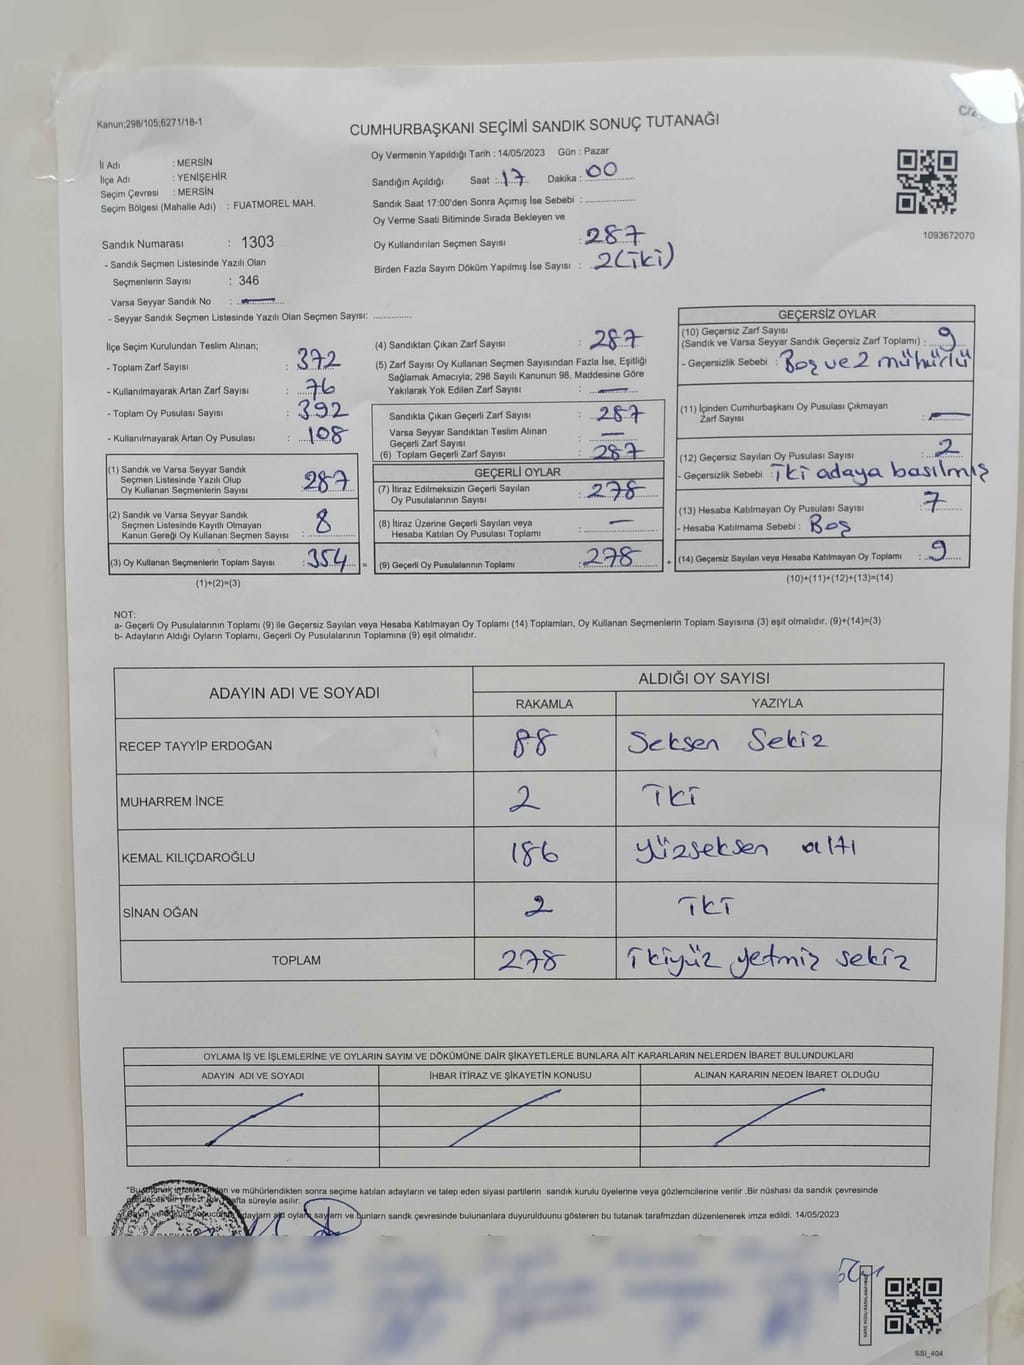 Kanun;298/105;6271/18-1
CUMHURBAŞKANI SEÇİMİ SANDIK SONUÇ TUTANAĞI
İl Adı : MERSİN
İlçe Adı : YENİŞEHİR
Seçim Çevresi : MERSİN
Seçim Bölgesi (Mahalle Adı) : FUATMOREL MAH.
Sandık Numarası : 1303
- Sandık Seçmen Listesinde Yazılı Olan
Seçmenlerin Sayısı : 346
Varsa Seyyar Sandık No :
- Seyyar Sandık Seçmen Listesinde Yazılı Olan Seçmen Sayısı:
Oy Vermenin Yapıldığı Tarih : 14/05/2023 Gün : Pazar
Sandığın Açıldığı Saat : 17 Dakika : 00
Sandık Saat 17:00'den Sonra Açımış İse Sebebi :
Oy Verme Saati Bitiminde Sırada Bekleyen ve
Oy Kullandırılan Seçmen Sayısı : 287
Birden Fazla Sayım Döküm Yapılmış İse Sayısı : 2 (iki)
1093672070
İlçe Seçim Kurulundan Teslim Alınan;
- Toplam Zarf Sayısı : 372
- Kullanılmayarak Artan Zarf Sayısı : 76
- Toplam Oy Pusulası Sayısı : 392
- Kullanılmayarak Artan Oy Pusulası : 108
(1) Sandık ve Varsa Seyyar Sandık
Seçmen Listesinde Yazılı Olup
Oy Kullanan Seçmenlerin Sayısı : 287
(2) Sandık ve Varsa Seyyar Sandık
Seçmen Listesinde Kayıtlı Olmayan
Kanun Gereği Oy Kullanan Seçmen Sayısı : 8
(3) Oy Kullanan Seçmenlerin Toplam Sayısı : 354 =
(1)+(2)=(3)
(4) Sandıktan Çıkan Zarf Sayısı : 287
(5) Zarf Sayısı Oy Kullanan Seçmen Sayısından Fazla İse, Eşitliği
Sağlamak Amacıyla; 298 Sayılı Kanunun 98. Maddesine Göre
Yakılarak Yok Edilen Zarf Sayısı : —
Sandıkta Çıkan Geçerli Zarf Sayısı : 287
Varsa Seyyar Sandıktan Teslim Alınan
Geçerli Zarf Sayısı : —
(6) Toplam Geçerli Zarf Sayısı : 287
GEÇERLİ OYLAR
(7) İtiraz Edilmeksizin Geçerli Sayılan
Oy Pusulalarının Sayısı : 278
(8) İtiraz Üzerine Geçerli Sayılan veya
Hesaba Katılan Oy Pusulası Toplamı : —
(9) Geçerli Oy Pusulalarının Toplamı : 278 +
GEÇERSİZ OYLAR
(10) Geçersiz Zarf Sayısı
(Sandık ve Varsa Seyyar Sandık Geçersiz Zarf Toplamı) : 9
- Geçersizlik Sebebi : Boş ve 2 mühürlü
(11) İçinden Cumhurbaşkanı Oy Pusulası Çıkmayan
Zarf Sayısı : —
(12) Geçersiz Sayılan Oy Pusulası Sayısı : 2
- Geçersizlik Sebebi : iki adaya basılmış
(13) Hesaba Katılmayan Oy Pusulası Sayısı : 7
- Hesaba Katılmama Sebebi : Boş
(14) Geçersiz Sayılan veya Hesaba Katılmayan Oy Toplamı : 9
(10)+(11)+(12)+(13)=(14)
NOT:
a- Geçerli Oy Pusulalarının Toplamı (9) ile Geçersiz Sayılan veya Hesaba Katılmayan Oy Toplamı (14) Toplamları, Oy Kullanan Seçmenlerin Toplam Sayısına (3) eşit olmalıdır. (9)+(14)=(3)
b- Adayların Aldığı Oyların Toplamı, Geçerli Oy Pusulalarının Toplamına (9) eşit olmalıdır.
ADAYIN ADI VE SOYADI ALDIĞI OY SAYISI
RAKAMLA YAZIYLA
RECEP TAYYİP ERDOĞAN 88 Seksen Sekiz
MUHARREM İNCE 2 İki
KEMAL KILIÇDAROĞLU 186 yüzseksen altı
SİNAN OĞAN 2 İki
TOPLAM 278 İkiyüz yetmiş sekiz
OYLAMA İŞ VE İŞLEMLERİNE VE OYLARIN SAYIM VE DÖKÜMÜNE DAİR ŞİKAYETLERLE BUNLARA AİT KARARLARIN NELERDEN İBARET BULUNDUKLARI
ADAYIN ADI VE SOYADI İHBAR İTİRAZ VE ŞİKAYETİN KONUSU ALINAN KARARIN NEDEN İBARET OLDUĞU
ve mühürlendikten sonra seçime katılan adayların ve talep eden siyasi partilerin sandık kurulu üyelerine veya gözlemcilerine verilir .Bir nüshası da sandık çevresinde
hafta süreyle asılır.
oyların sayların ve bunların sandk çevresinde bulunanlara duyurulduunu gösteren bu tutanak tarafmzdan düzenlenerek imza edildi. 14/05/2023
SSI_404